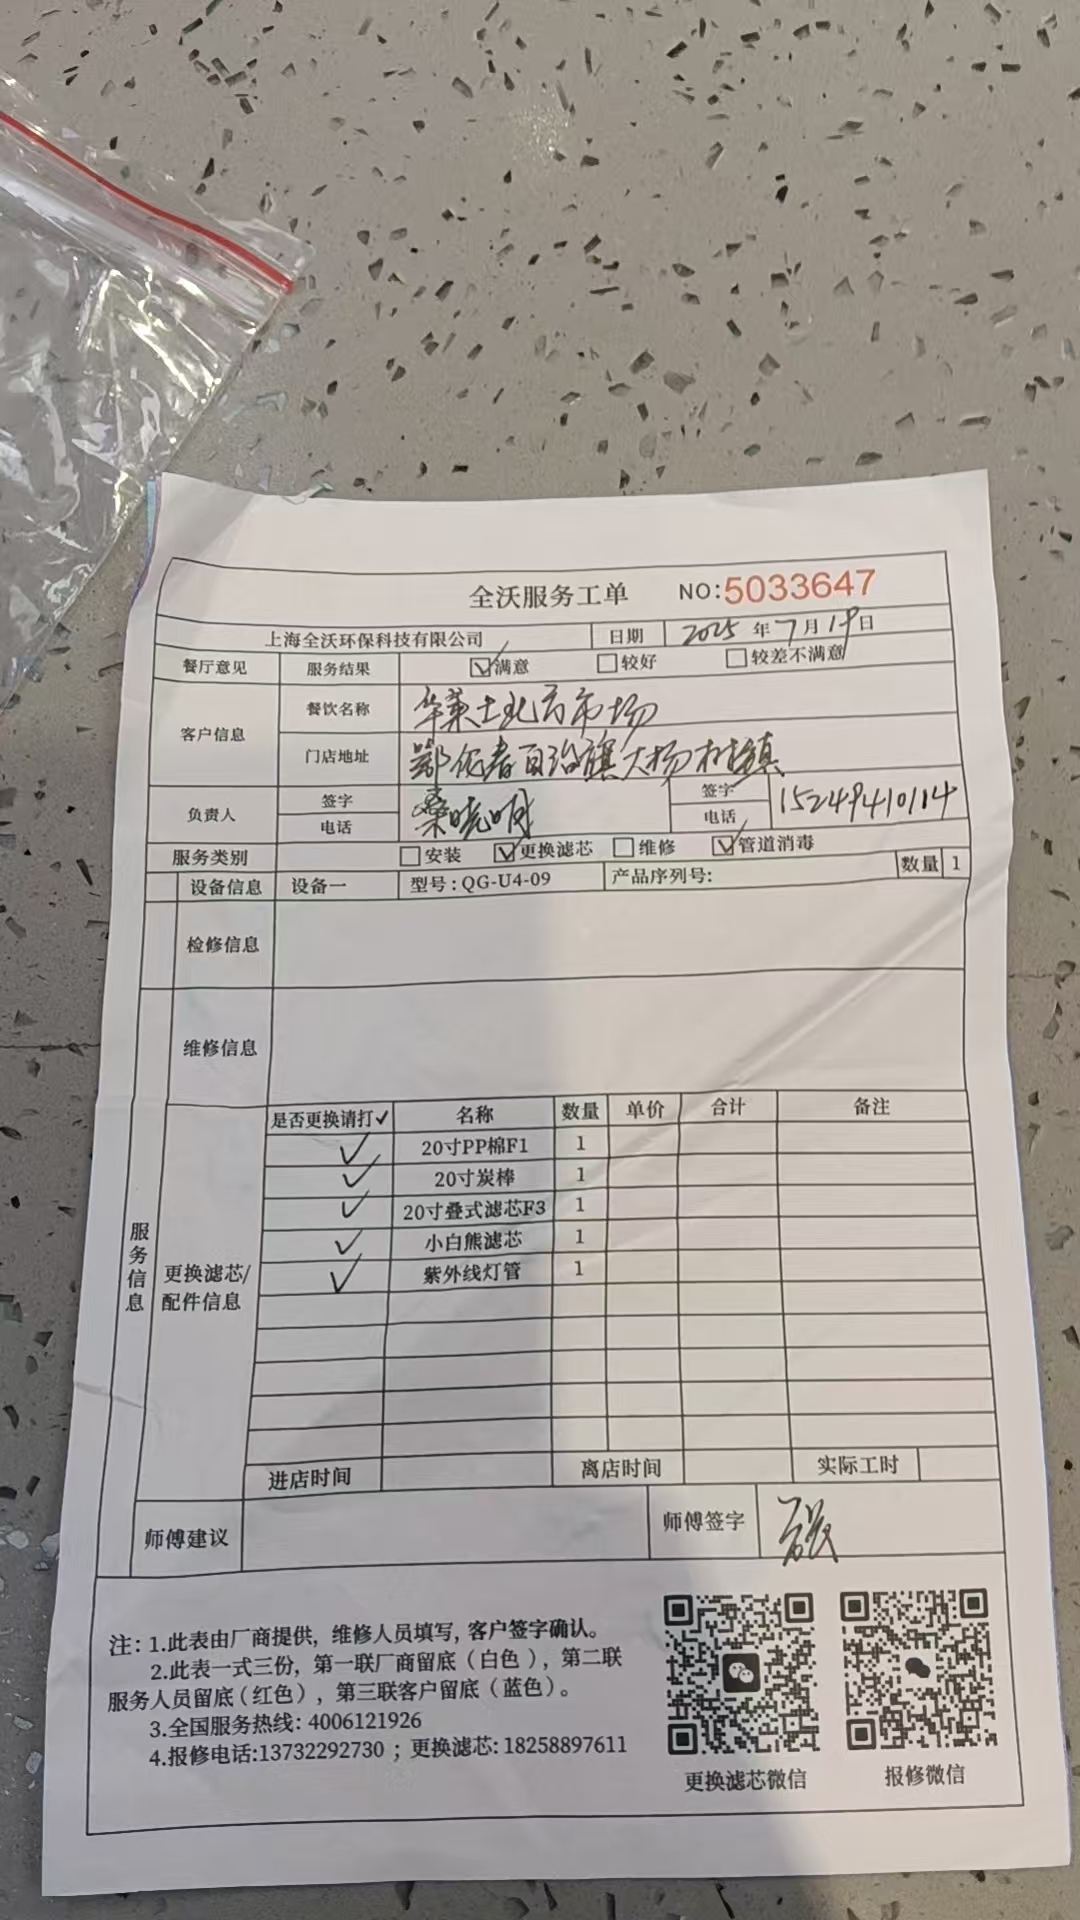 全沃服务工单 NO:5033647
上海全沃环保科技有限公司 日期 2025 年 7 月 19 日
餐厅意见 服务结果 满意 较好 较差不满意
客户信息 餐饮名称 华莱士北方市场
门店地址 鄂伦春自治旗大杨树镇
负责人 签字 桑晓明 签字
电话 电话 15249410114
服务类别 安装 更换滤芯 维修 管道消毒
设备信息 设备一 型号:QG-U4-09 产品序列号: 数量 1
检修信息
维修信息
服务信息
更换滤芯/配件信息
是否更换请打✓ 名称 数量 单价 合计 备注
✓ 20寸PP棉F1 1
✓ 20寸炭棒 1
✓ 20寸叠式滤芯F3 1
✓ 小白熊滤芯 1
✓ 紫外线灯管 1
进店时间 离店时间 实际工时
师傅建议 师傅签字
注: 1.此表由厂商提供, 维修人员填写, 客户签字确认。
2.此表一式三份, 第一联厂商留底(白色), 第二联
服务人员留底(红色), 第三联客户留底(蓝色)。
3.全国服务热线: 4006121926
4.报修电话:13732292730 ; 更换滤芯: 18258897611
更换滤芯微信 报修微信